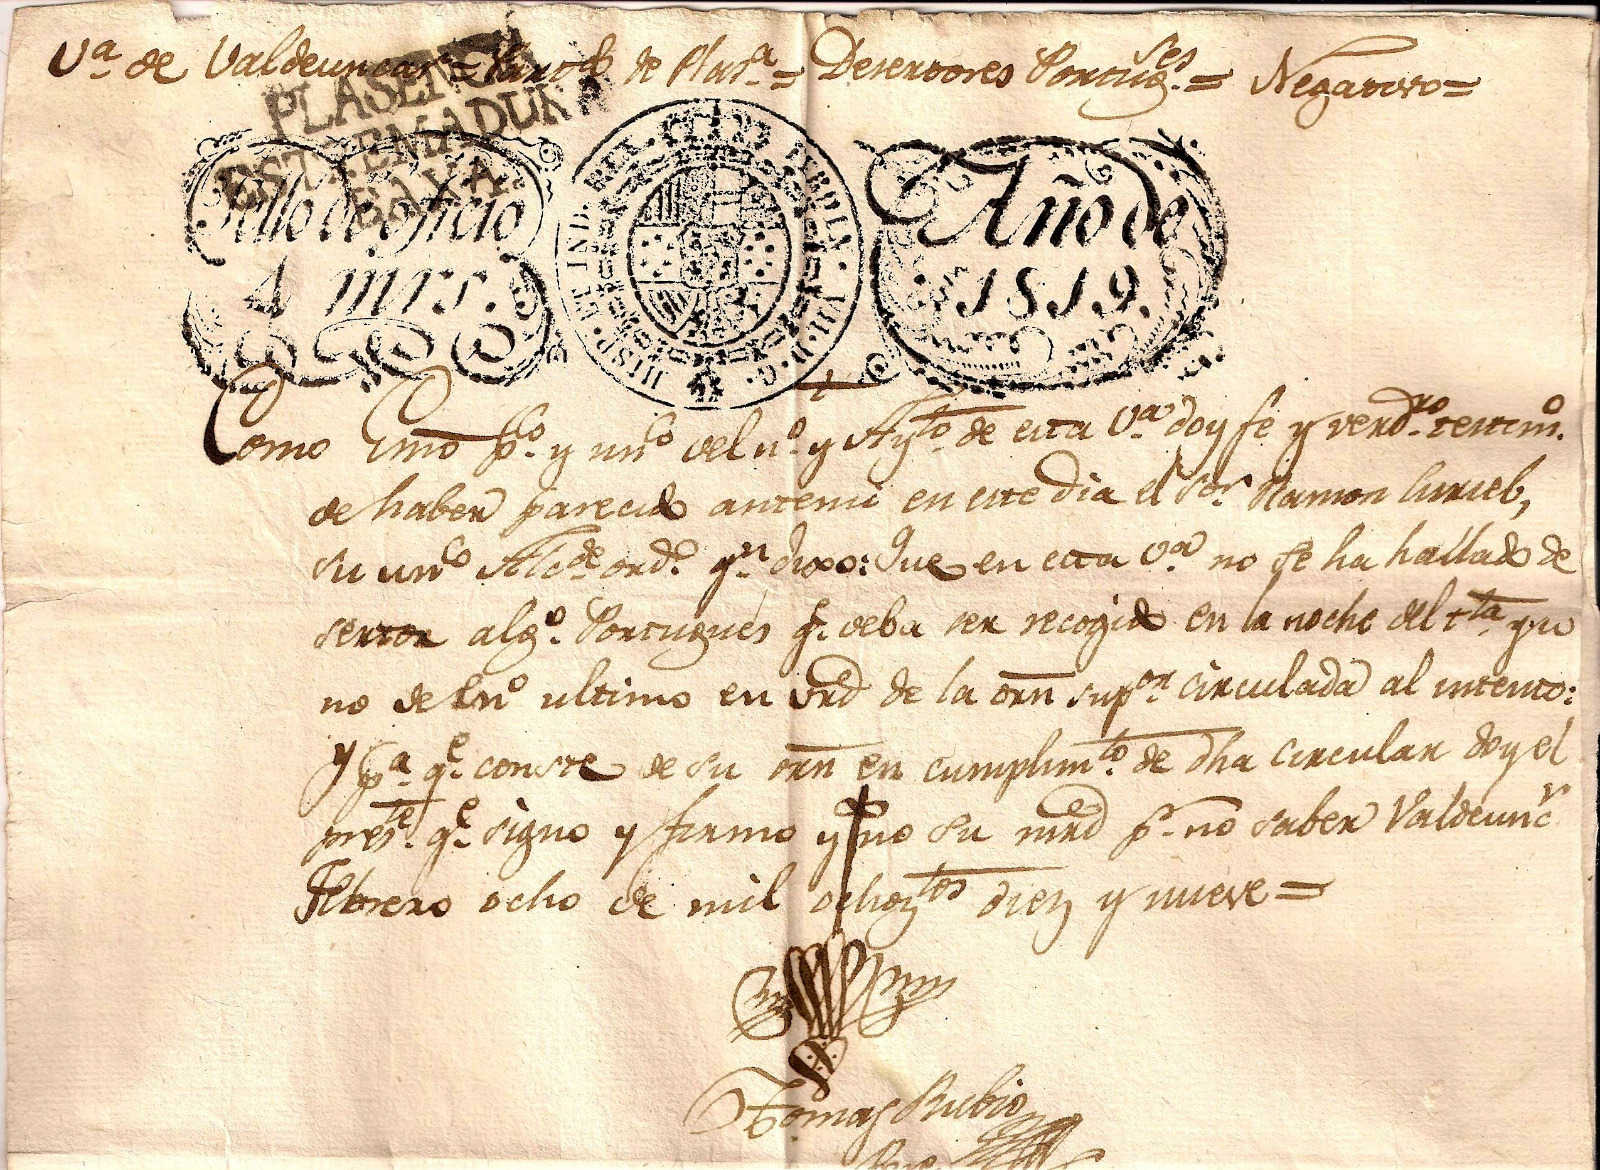 Vª de Valdeuncarˢ = Partᵈᵒ de Plasª = Desertores Portugˢᵉˢ = Negativo =
PLASENCIA
ESTREMADURA
BAXA
Sello de oficio
4 mrs.
HISP. ET IND. REX. FERDIN. VII. D. G.
Año de
1819.
Como Essno pᶜᵒ y unᶜᵒ del nº y Aytᵒ de esta Vª doy fe y verdʳᵒ testimº
de haber parecido antemi en este dia el Sᵒʳ Ramon Curiel,
su unᶜᵒ Alcᵈᵉ ordº qⁿ dixo: Que en esta Vª no se ha hallado de
sertor algº Portugués qᵉ deba ser recogido en la noche del tᵗᵃ y u
no de Enº ultimo en vrd de la orn supᵒʳ circulada al intento:
y pª qᵉ conste de su orn en cumplimᵗᵒ de dha circular doy el
presᵗᵉ qᵉ signo y firmo y no su mrd pʳ no saber Valdeuncʳ
Febrero ocho de mil ochozᵗᵒˢ diez y nueve =
Tomas Rubio